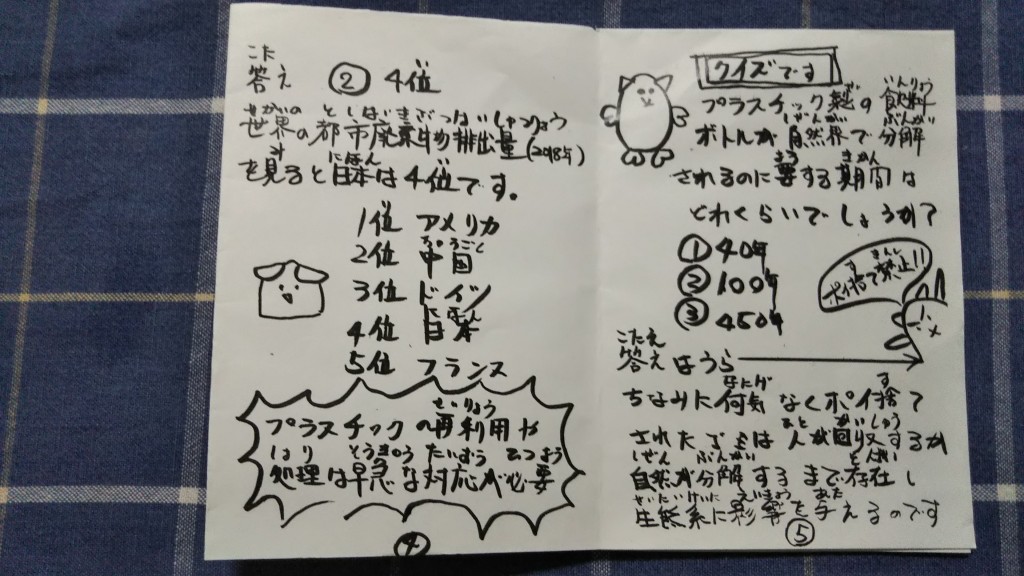 こた
答え ② 4位
せかいの としはいきぶつはいしゅつりょう
世界の都市廃棄物排出量(2018年)
み にほん
を見ると日本は4位です。
1位 アメリカ
ちゅうごく
2位 中国
3位 ドイツ
にほん
4位 日本
5位 フランス
せいりよう
プラスチックの再利用や
しょり とうきゅう たいおう ひつよう
処理は早急な対応が必要
④
クイズです
プラスチック製の飲料
しぜんかい ぶんかい
ボトルが自然界で分解
よう きかん
されるのに要する期間は
どれくらいでしょうか?
① 40年
② 100年
③ 450年
す きんし
ポイ捨て禁止!!
こたえ
答えはうら
なにげ す
ちなみに何気なくポイ捨て
かいしゅう
されたごみは人が回収するか
しぜん ぶんかい そんざい
自然が分解するまで存在し
せいたいけいに えいきょう あた
生態系に影響を与えるのです
⑤